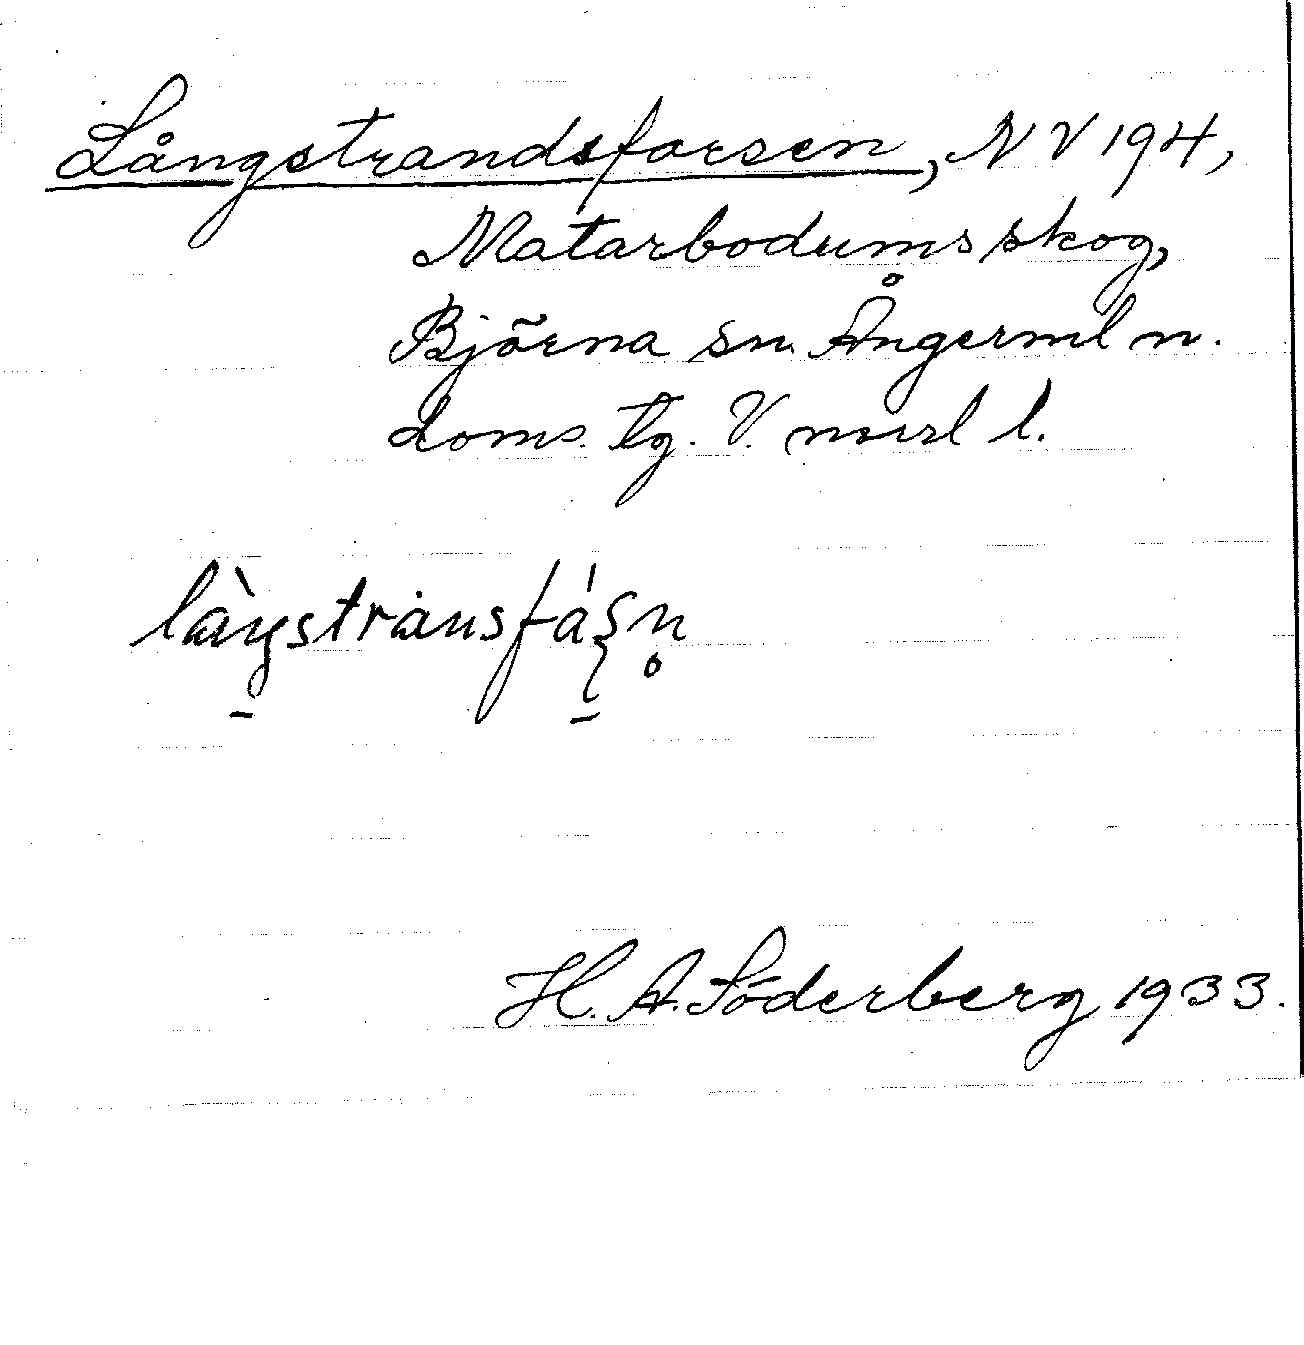 Långstrandsforsen, NV 194,
Matarbodums skog,
Björna sn. Ångerml n.
doms. tg. V. norrl l.
làŋstransfáʂn̥
H. A. Söderberg 1933.